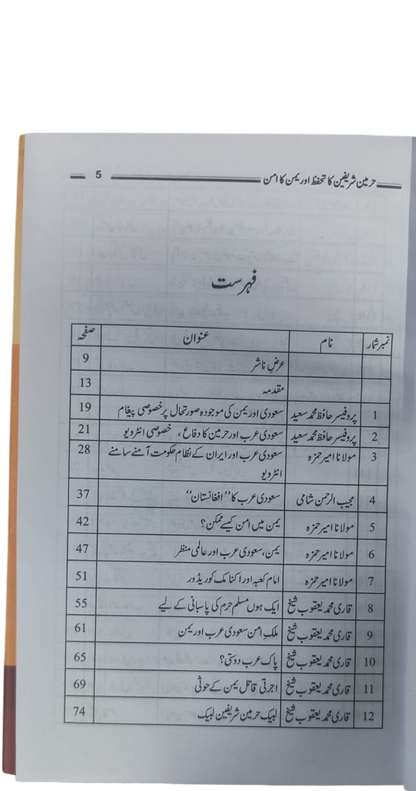 حرمین شریفین کا تحفظ اور یمن کا امن 5
فہرست
نمبر شمار نام عنوان صفحہ
عرض ناشر 9
مقدمہ 13
1 پروفیسر حافظ محمد سعید سعودی اور یمن کی موجودہ صورتحال پر خصوصی پیغام 19
2 پروفیسر حافظ محمد سعید سعودی عرب اور حرمین کا دفاع ، خصوصی انٹرویو 21
3 مولانا امیر حمزہ سعودی عرب اور ایران کے نظام حکومت آمنے سامنے 28
انٹرویو
4 مجیب الرحمن شامی سعودی عرب کا "افغانستان" 37
5 مولانا امیر حمزہ یمن میں امن کیسے ممکن؟ 42
6 مولانا امیر حمزہ یمن، سعودی عرب اور عالمی منظر 47
7 مولانا امیر حمزہ امام کعبہ اور اکنامک کوریڈور 51
8 قاری محمد یعقوب شیخ ایک ہوں مسلم حرم کی پاسبانی کے لیے 55
9 قاری محمد یعقوب شیخ ملک امن سعودی عرب اور یمن 61
10 قاری محمد یعقوب شیخ پاک عرب دوستی؟ 65
11 قاری محمد یعقوب شیخ اجرتی قاتل یمن کے حوثی 69
12 قاری محمد یعقوب شیخ لبیک حرمین شریفین لبیک 74